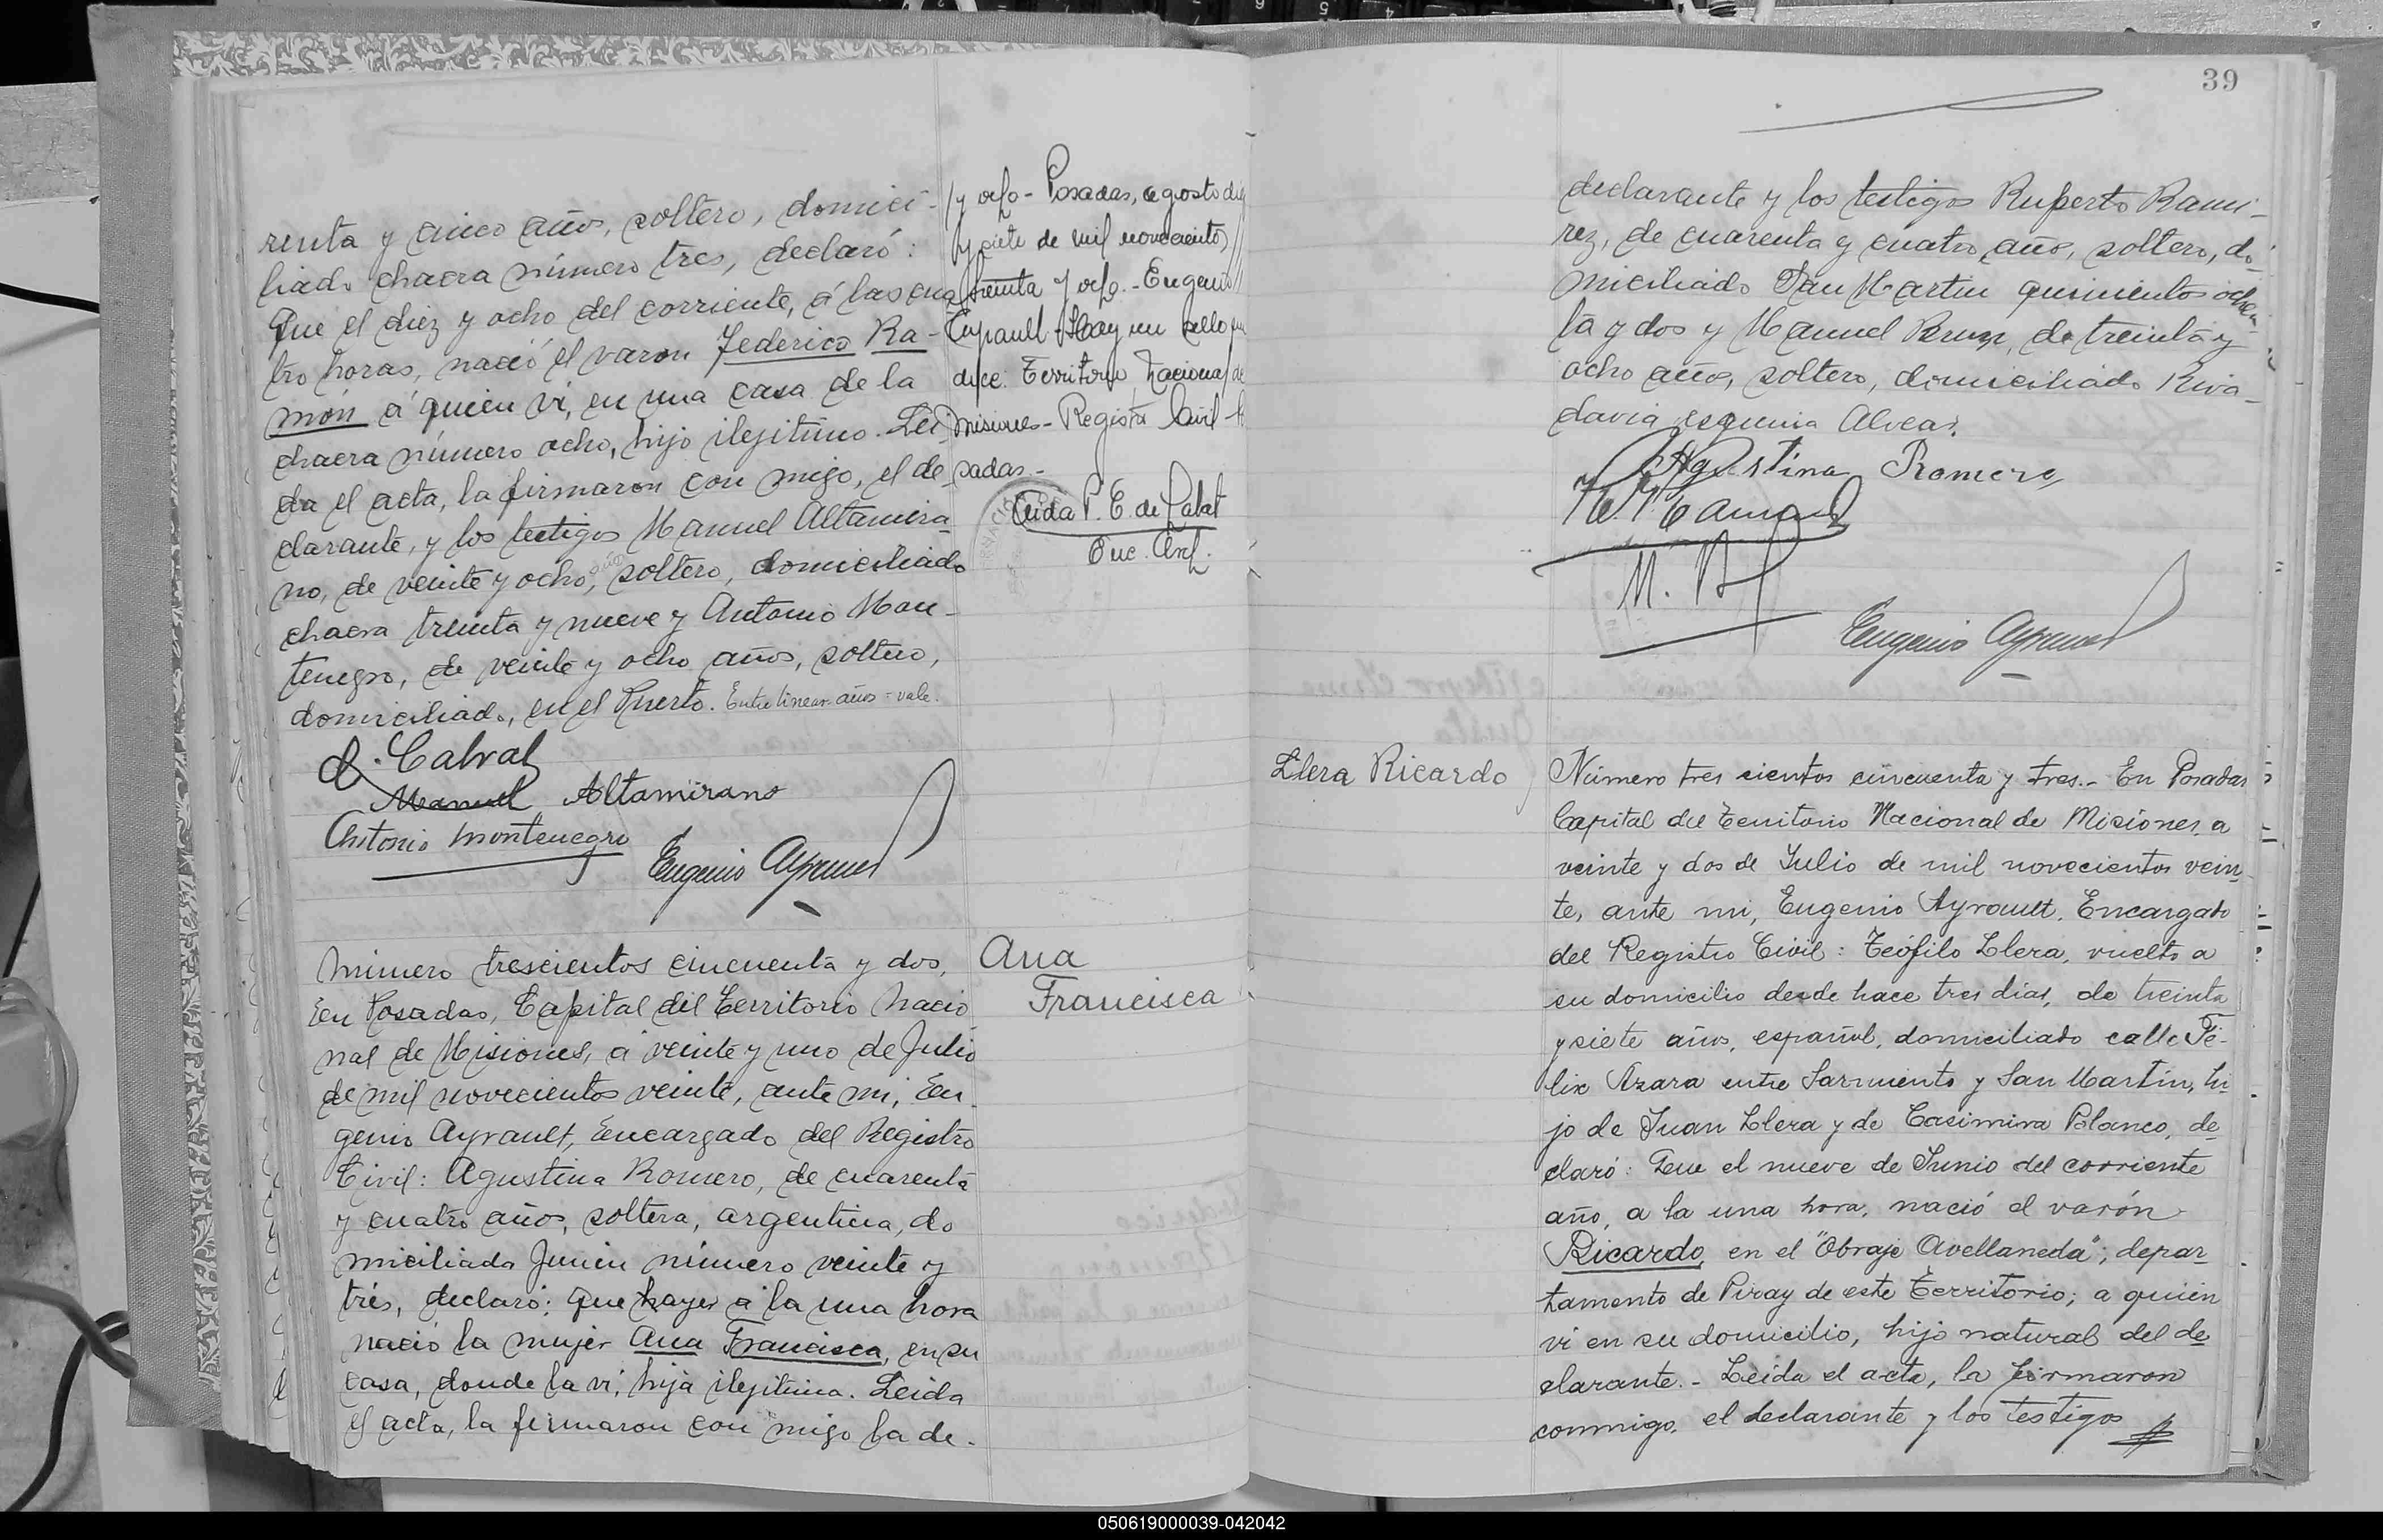 renta y cinco años, soltero, domici-
liado chacra número tres, declaró:
Que el diez y ocho del corriente, á las cua
tro horas, nació el varon Federico Ra-
món á quien vi, en una casa de la
chacra número ocho, hijo ilegítimo. Lei
da el acta, la firmaron con migo, el de
clarante, y los testigos Manuel Altamira
no, de veinte y ocho años, soltero, domiciliado
chacra treinta y nueve y Antonio Mon-
tenegro, de veinte y ocho años, soltero,
domiciliado, en el Puerto. Entre lineas años = vale.
Cabral
Manuel Altamirano
Antonio Montenegro
Eugenio Ayrault
/y ocho - Posadas, agosto diez
y siete de mil novecientos//
treinta y ocho.- Eugenio//
Ayrault - Hay un sello que
dice: Territorio Nacional de
Misiones - Registro Civil - Po
sadas.-
Aida P. E. de
Enc.
Número trescientos cincuenta y dos,
En Posadas, Capital del Territorio Nacio
nal de Misiones, á veinte y uno de Julio
de mil novecientos veinte, ante mi, Eu
genio Ayrault, Encargado del Registro
Civil: Agustina Romero, de cuarenta
y cuatro años, soltera, argentina, do
miciliada Junin número veinte y
tres, declaró: Que hayer a la una hora
nació la mujer Ana Francisca, en su
casa, donde la vi, hija ilegitima. Leida
el acta, la firmaron con migo la de-
Ana
Francisca
39
declarante y los testigos Ruperto Rami-
rez, de cuarenta y cuatro años, soltero, do-
miciliado San Martin quinientos ochen
ta y dos y Manuel Brun, de treinta y
ocho años, soltero, domiciliado Riva-
davia esquina Alvear.
Agustina Romero
M. B
Eugenio Ayrault
Llera Ricardo
Número tres cientos cincuenta y tres.- En Posadas
Capital del Territorio Nacional de Misiones, a
veinte y dos de Julio de mil novecientos vein
te, ante mi, Eugenio Ayrault, Encargado
del Registro Civil: Teófilo Llera, vuelto a
su domicilio desde hace tres días, de treinta
y siete años, español, domiciliado calle Fé-
lix Azara entre Sarmiento y San Martin, hi
jo de Juan Llera y de Casimira Blanco, de
claró: Que el nueve de Junio del corriente
año, a la una hora, nació el varón
Ricardo, en el "Obraje Avellaneda"; depar
tamento de Piray de este Territorio; a quién
vi en su domicilio, hijo natural del de
clarante.- Leída el acta, la firmaron
conmigo, el declarante y los testigos
050619000039-042042